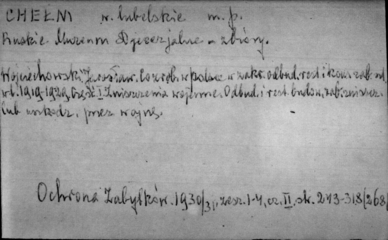 CHEŁM w. lubelskie m. p.
Ruskie Muzeum Dyecezjalne - zbiory.
Wojciechowski Jarosław. Co zrob. w Polsce w zakr. odbud. rest. i kons. zab. od
r. 1919-1929 Cz. I Zniszczenia wojenne. Odbud. i rest. budow. zab. zniszcz.
lub uszkodz. przez wojnę.
Ochrona Zabytków. 1930/31, zesz. 1-4, cz. II, str. 243-318/268/